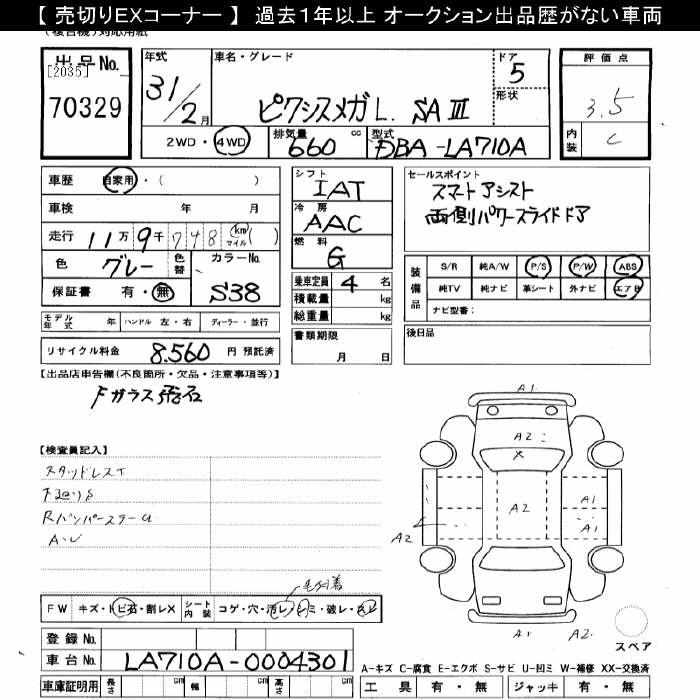 【 売切りEXコーナー 】 過去1年以上 オークション出品歴がない車両
(複合機)対応用紙
出品No.
[2035]
70329
年式
31/2月
車名・グレード
ピクシスメガ L. SAⅢ
ドア
5
形状
2WD・4WD
排気量
660 cc
型式
DBA-LA710A
評価点
3.5
内装
C
車歴 自家用・( )
車検 年 月
走行 11万9千748 (km マイル)( )
色 グレー 色替
カラーNo. S38
保証書 有・無
シフト
IAT
冷房
AAC
燃料
G
乗車定員 4 名
積載量 kg
総重量 kg
セールスポイント
スマートアシスト
両側パワースライドドア
装備品
S/R 純A/W P/S P/W ABS
純TV 純ナビ 革シート 外ナビ エアB
ナビ型番:
モデル年式 年 ハンドル 左・右 ディーラー・並行
書類期限
月 日
後日品
リサイクル料金 8.560 円 預託済
【出品店申告欄(不良箇所・欠品・注意事項等)】
Fガラス飛石
【検査員記入】
スタッドレスT
下廻りS
RバンパーステーU
A・U
A1
A2
X
A2
A1
A1
A2
A1
A2
スペア
毛付着
FW キズ・トビ石・割レX シート内装 コゲ・穴・汚レ・シミ・破レ・スレ
登録No.
車台No. LA710A-0004301
車庫証明用 長さ cm 幅 cm 高さ cm
A-キズ C-腐食 E-エクボ S-サビ U-凹ミ W-補修 XX-交換済
工具 有・無 ジャッキ 有・無